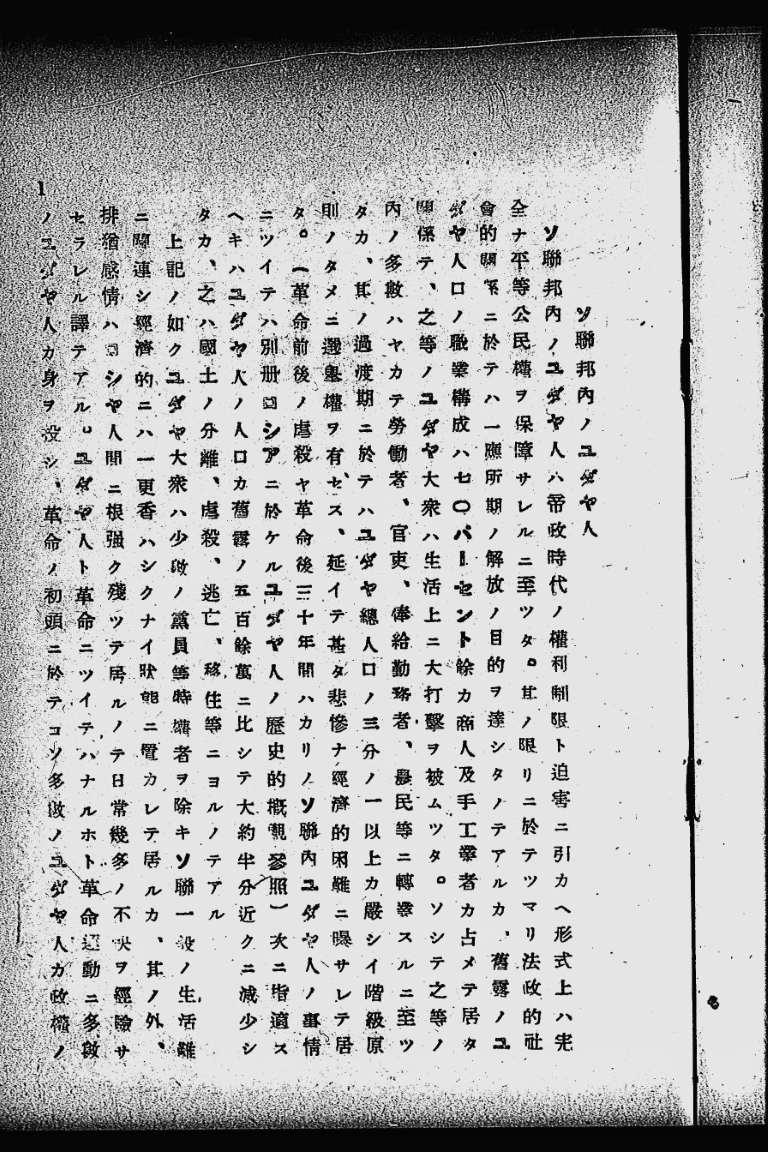 ソ聯邦內ノユダヤ人
ソ聯邦內ノユダヤ人ハ帝政時代ノ權利制限ト迫害ニ引カヘ形式上ハ完
全ナ平等公民權ヲ保障サレルニ至ツタ。其ノ限リニ於テツマリ法政的社
會的關係ニ於テハ一應所期ノ解放ノ目的ヲ達シタノテアルカ、舊露ノユ
ダヤ人口ノ職業構成ハ七〇パーセント餘カ商人及手工業者カ占メテ居タ
關係テ、之等ノユダヤ大衆ハ生活上ニ大打擊ヲ被ムツタ。ソシテ之等ノ
內ノ多數ハヤカテ勞働者、官吏、俸給勤務者、農民等ニ轉業スルニ至ツ
タカ、其ノ過渡期ニ於テハユダヤ總人口ノ三分ノ一以上カ嚴シイ階級原
則ノタメニ選擧權ヲ有セス、延イテ甚タ悲慘ナ經濟的困難ニ曝サレテ居
タ。(革命前後ノ虐殺ヤ革命後三十年間ハカリノソ聯內ユダヤ人ノ事情
ニツイテハ別册ロシアニ於ケルユダヤ人ノ歷史的槪觀參照)次ニ指適ス
ヘキハユダヤ人ノ人口カ舊露ノ五百餘萬ニ比シテ大約半分近クニ減少シ
タカ、之ハ國土ノ分離、虐殺、逃亡、移住等ニヨルノテアル
上記ノ如クユダヤ大衆ハ少數ノ黨員等特權者ヲ除キソ聯一般ノ生活難
ニ關連シ經濟的ニハ一更香ハシクナイ狀態ニ置カレテ居ルカ、其ノ外、
排猶感情ハロシヤ人間ニ根强ク殘ツテ居ルノテ日常幾多ノ不快ヲ經驗サ
セラレル譯テアル。ユダヤ人ト革命ニツイテハナルホト革命運動ニ多數
ノユダヤ人カ身ヲ投シ、革命ノ初頭ニ於テコソ多數ノユダヤ人カ政權ノ
1